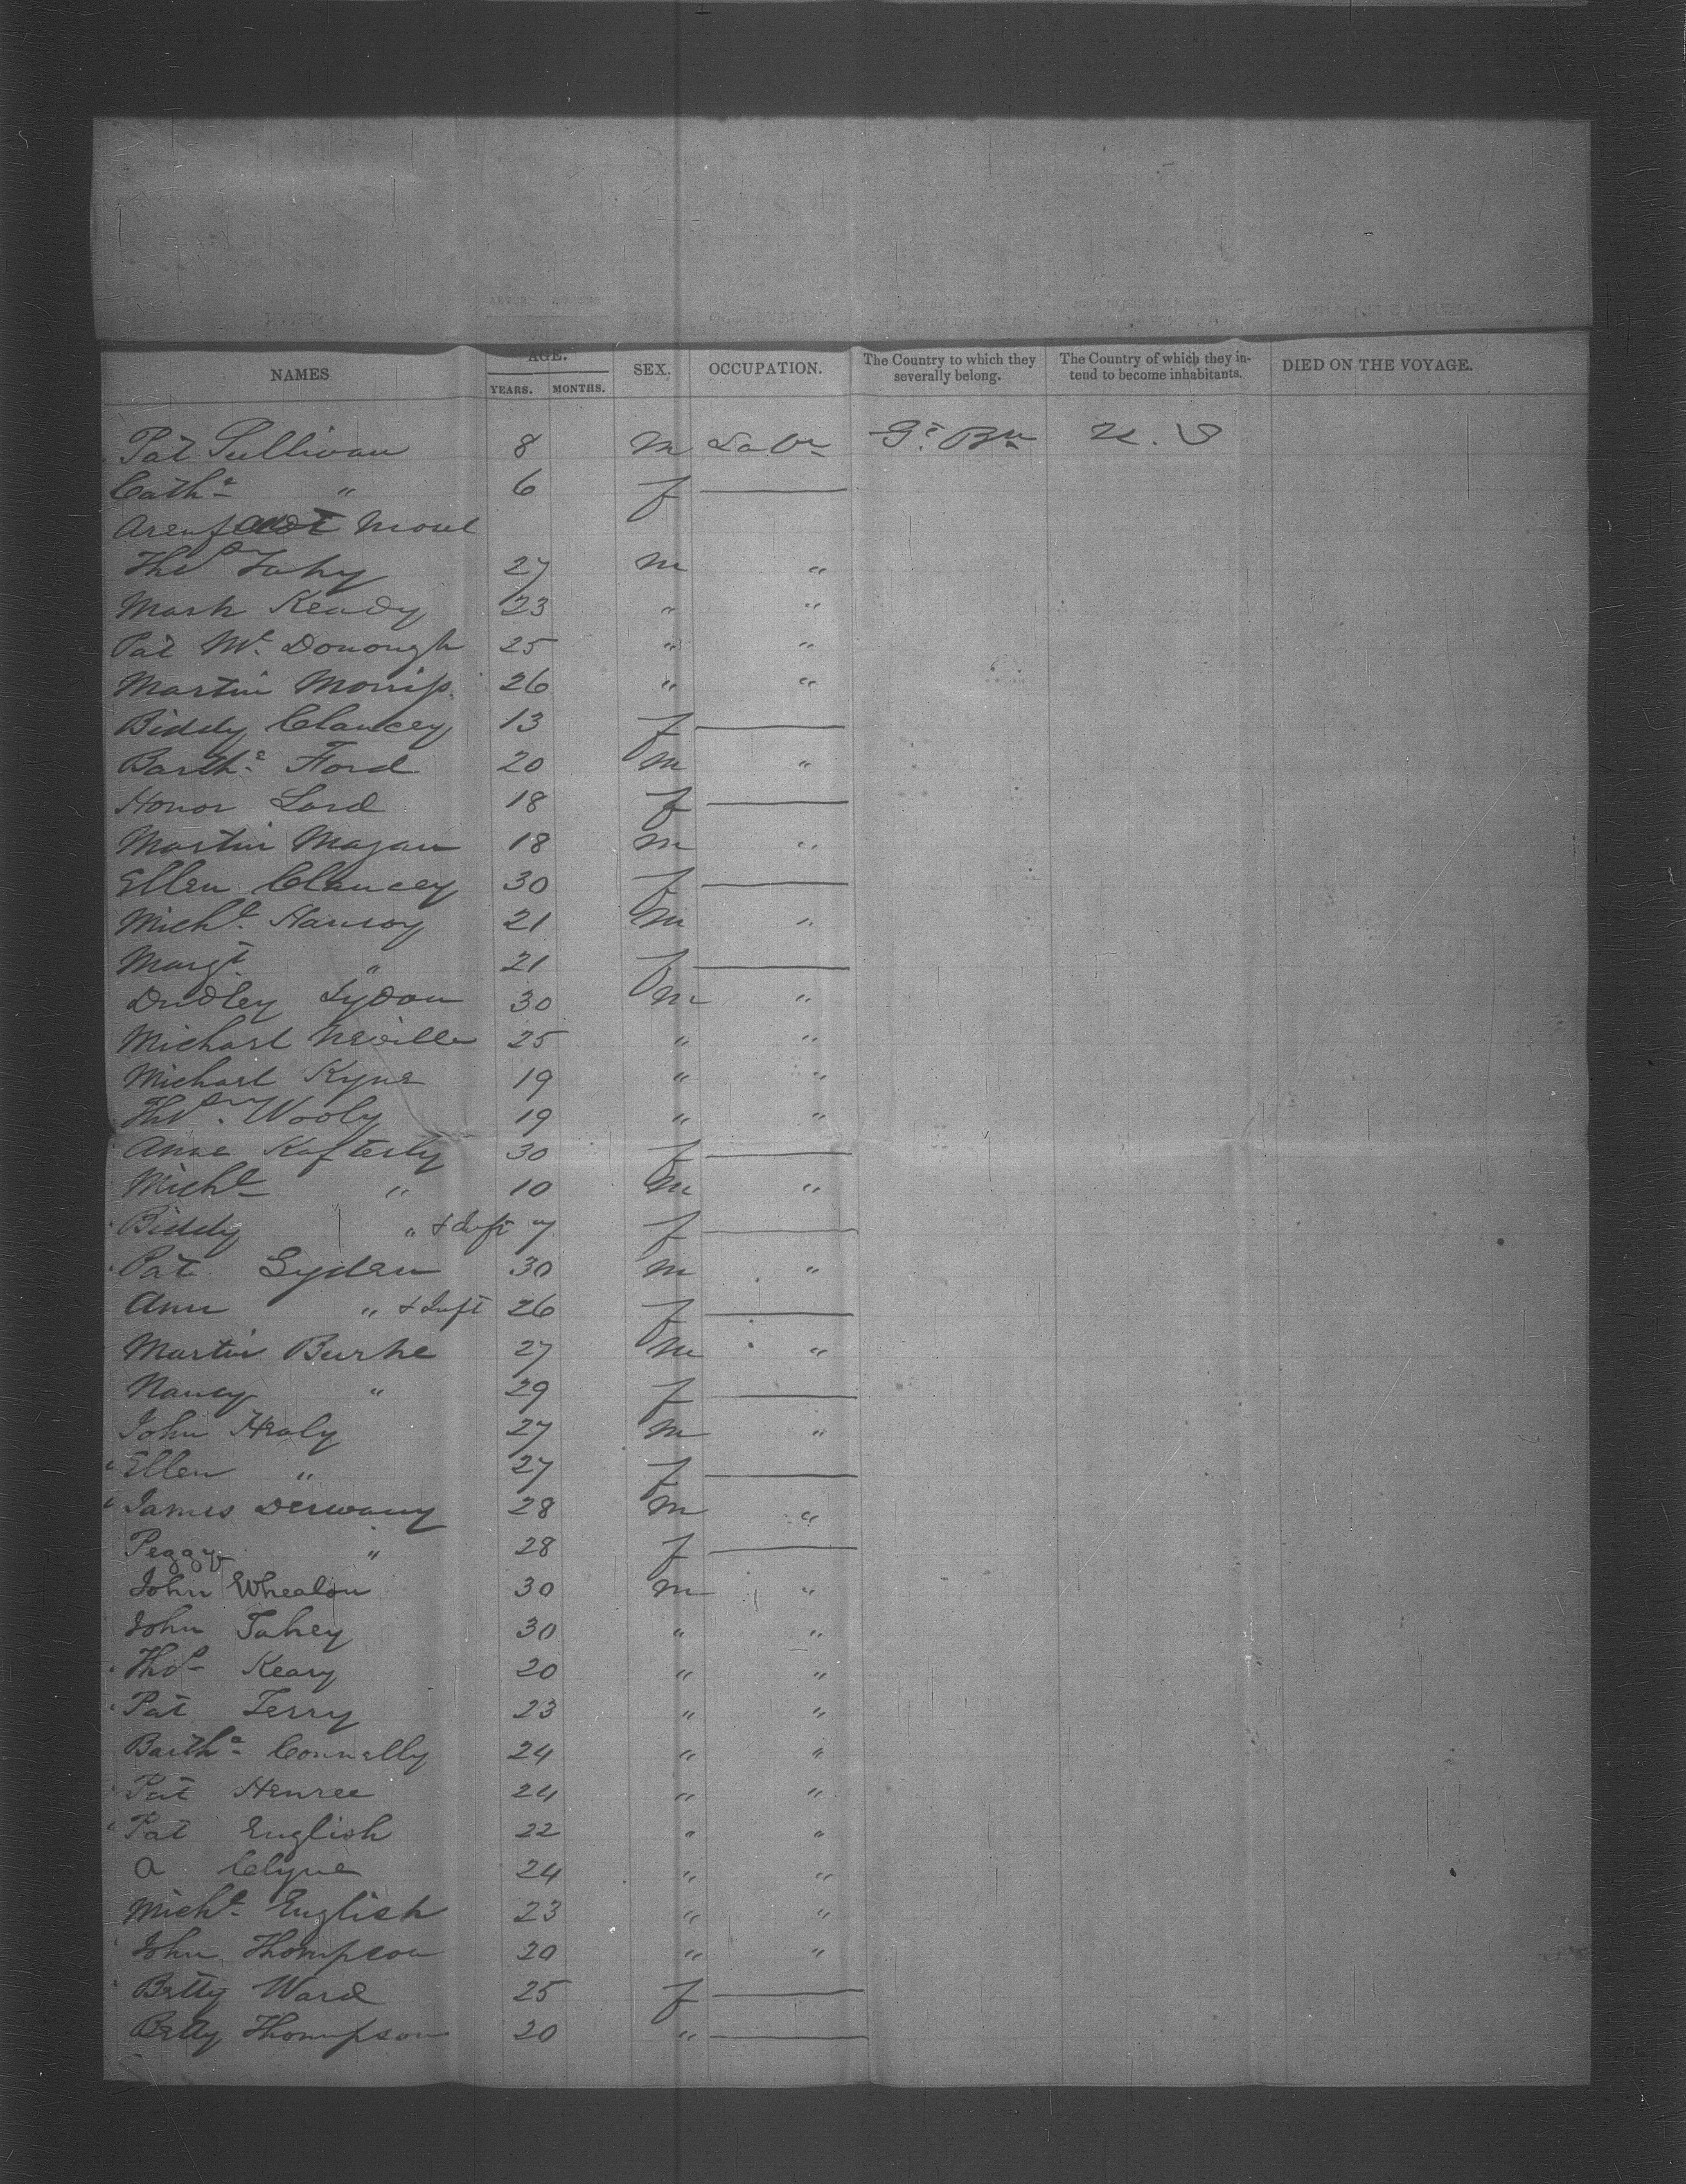 NAMES AGE. YEARS. MONTHS. SEX. OCCUPATION. The Country to which they severally belong. The Country of which they intend to become inhabitants. DIED ON THE VOYAGE.
Pat Sullivan 8 m Labr Gt Bn U.S
Cathe " 6 f —
Infant
Thos Fahy 27 m "
Mark Keady 23 " "
Pat Mc Donough 25 " "
Martin Morris 26 " "
Biddy Clancey 13 f —
Barthe Ford 20 m "
Honor Lard 18 f —
Martin Magan 18 m "
Ellen Clancey 30 f —
Michl Hanroy 21 m "
Margt " 21 f —
Dudley Lydon 30 m "
Michael Neville 25 " "
Michael Kyne 19 " "
Thos Wooly 19 " "
Anne Kafterly 30 f —
Michl " 10 m "
Biddy " & Inft 7 f —
Pat Lyden 30 m "
Ann " & Inft 26 f —
Martin Burke 27 m "
Nancy " 29 f —
John Healy 27 m "
Ellen " 27 f —
James Derwany 28 m "
Peggy " 28 f —
John Whealon 30 m "
John Fahey 30 " "
Thos Keary 20 " "
Pat Ferry 23 " "
Barthe Connelly 24 " "
Pat Henree 24 " "
Pat English 22 " "
A Clyne 24 " "
Michl English 23 " "
John Thompson 20 " "
Betty Ward 25 f —
Betty Thompson 20 " —